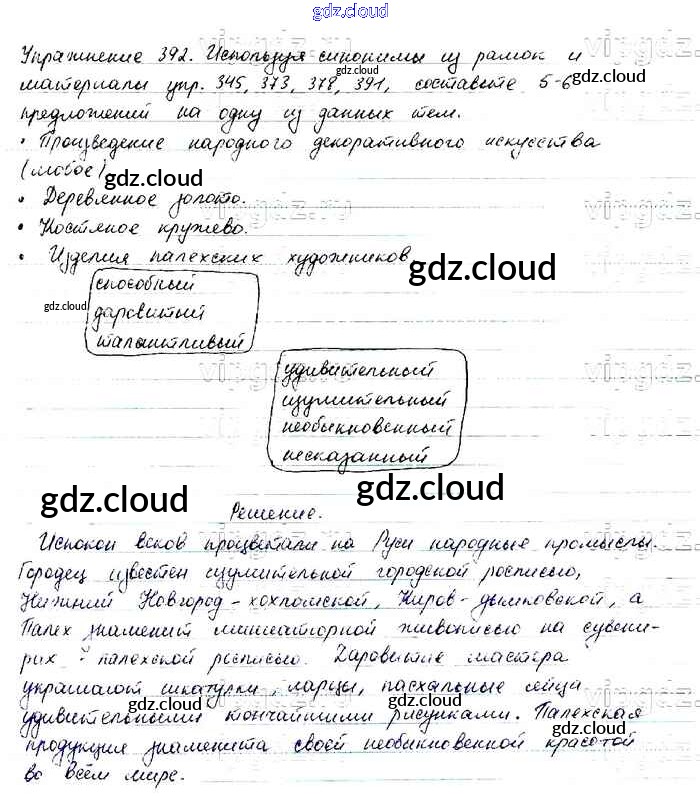 gdz.cloud
Упражнение 392. Используя синонимы из рамок и
материалы упр. 345, 373, 378, 391, составьте 5-6
gdz.cloud
предложений на одну из данных тем.
• Произведение народного декоративного искусства
(любое)
gdz.cloud
• Деревянное золото.
• Костяное кружево.
• Изделия палехских художников
gdz.cloud
способный
gdz.cloud
даровитый
талантливый
удивительный
изумительный
необыкновенный
несказанный
gdz.cloud
gdz.cloud
Решение.
Испокон веков процветали на Руси народные промыслы.
Городец известен изумительной городской росписью,
Нижний Новгород - хохломской, Киров - дымковской, а
Палех знаменит миниатюрной живописью на сувени-
рах - палехской росписью. Даровитые мастера
украшают шкатулки, ларцы, пасхальные яйца
gdz.cloud
gdz.cloud
удивительными тончайшими рисунками. Палехская
продукция знаменита своей необыкновенной красотой
во всём мире.
gdz.cloud
gdz.cloud